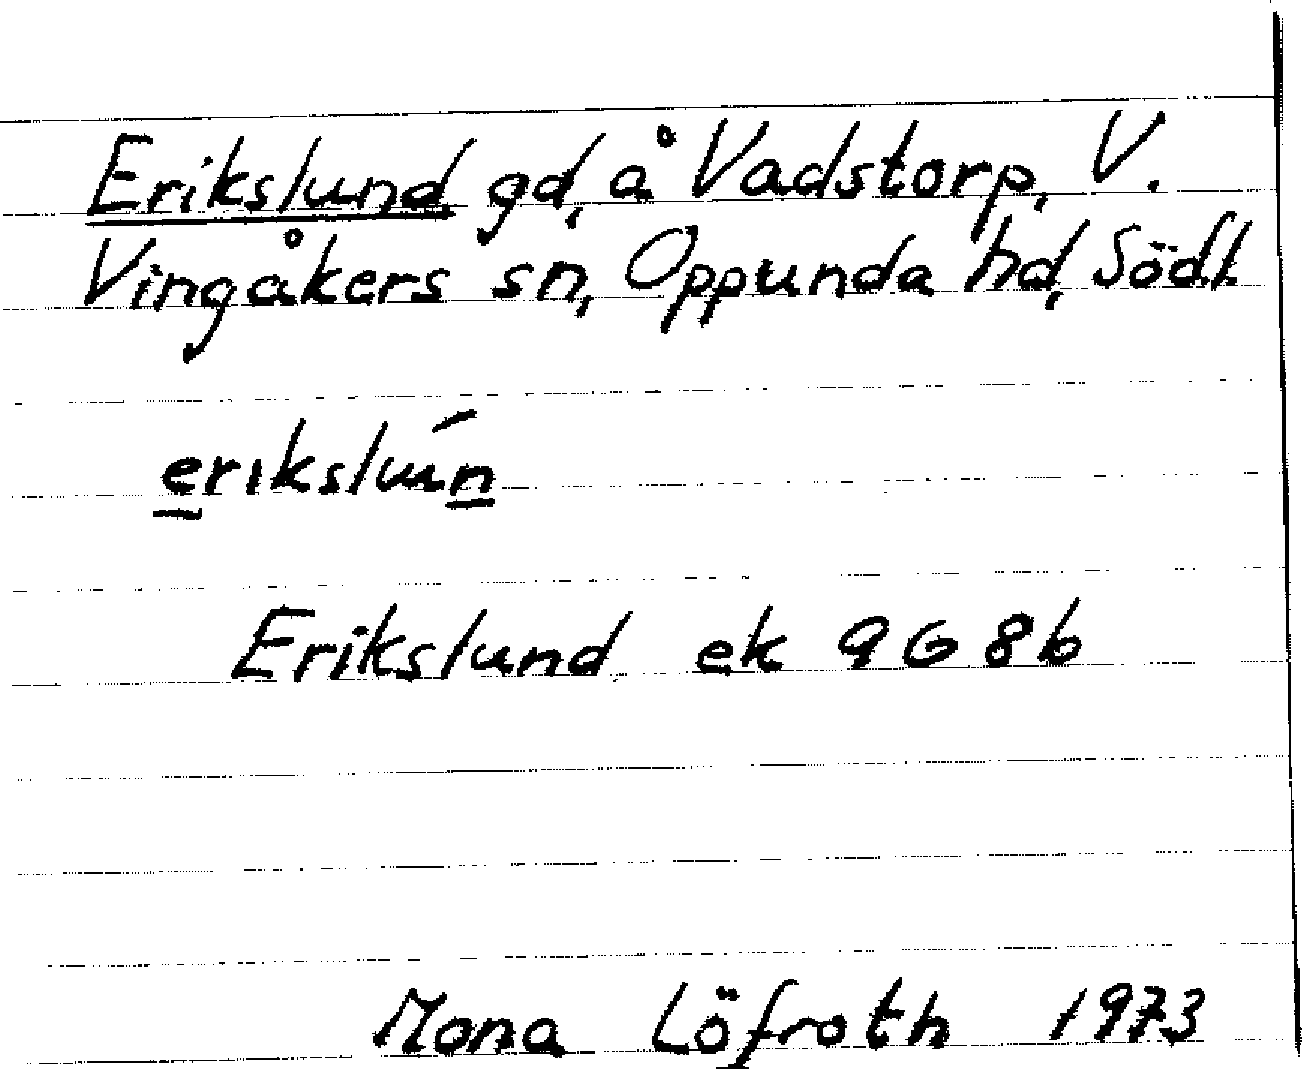 Erikslund gd, å Vadstorp, V.
Vingåkers sn, Oppunda hd, Södl.
erikslún
Erikslund ek 9G8b
Mona Löfroth 1973